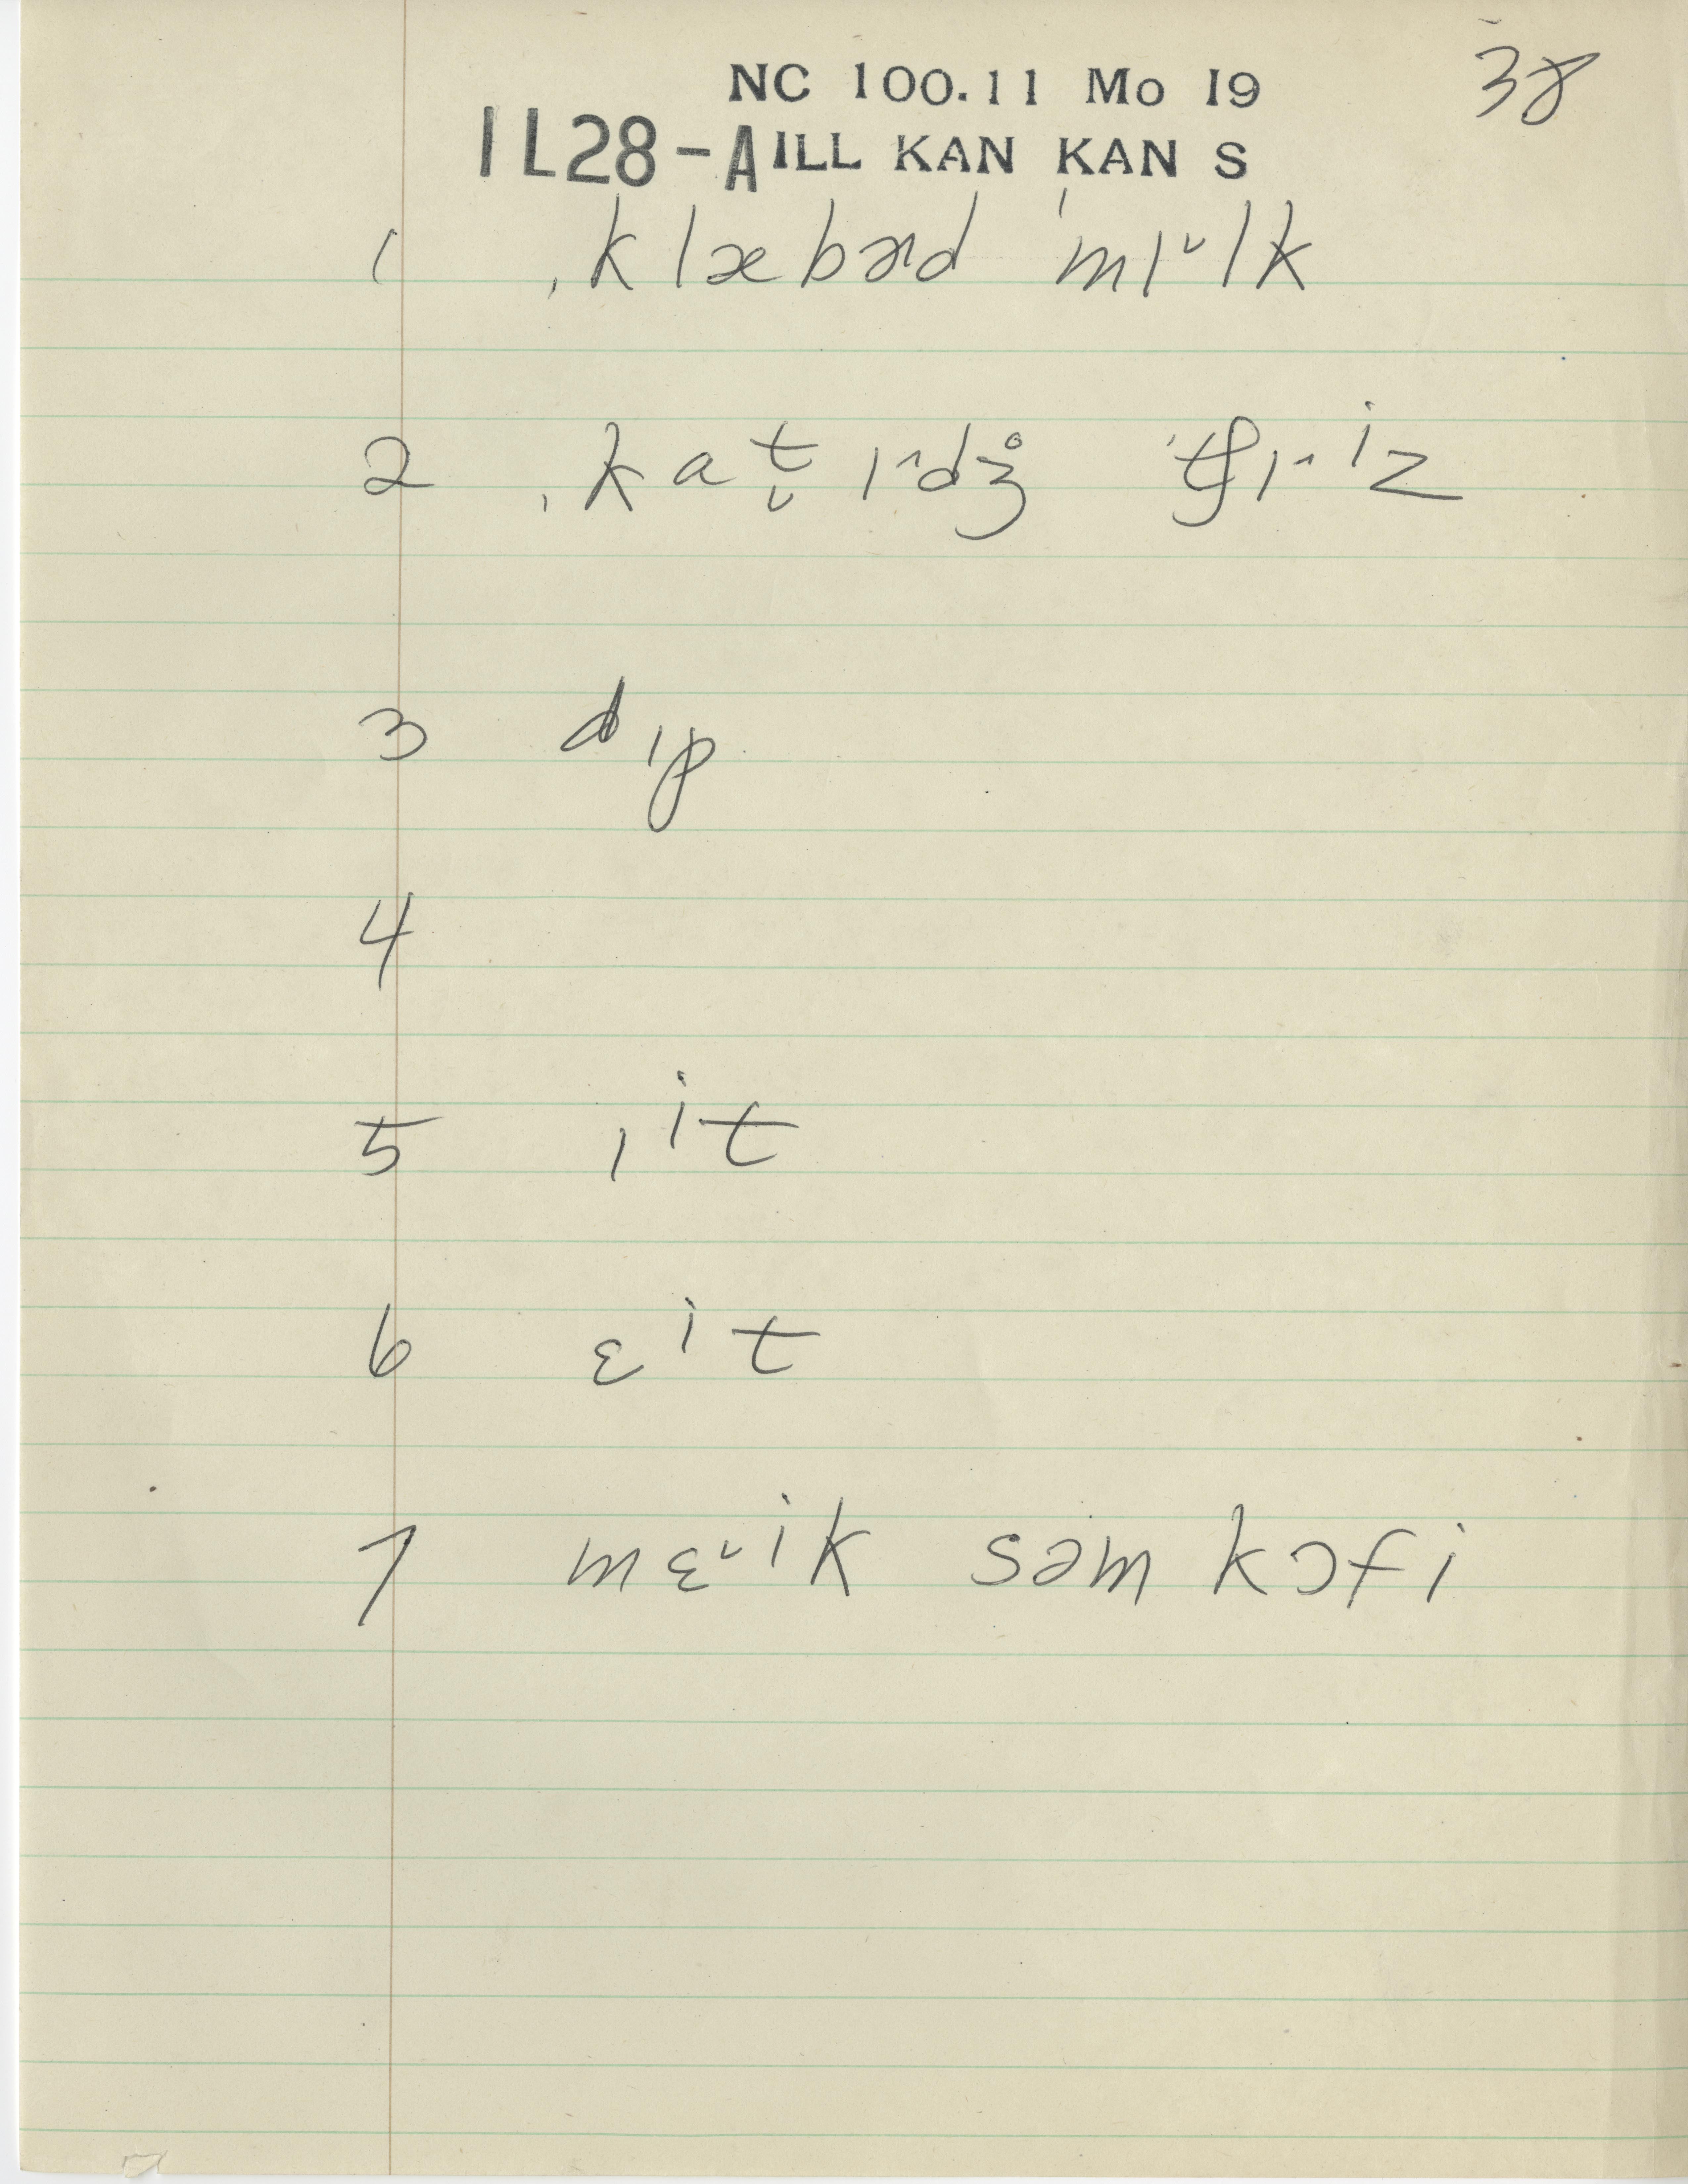 38
NC 100.11 Mo I9
IL28-A ILL KAN KAN S
1 ˌklæbɚd ˈmɪ˅lk
2 ˌkat̬ɪ˄dʒ̊ ˈtʃɪ˄ⁱz
3 dɪp
4
5 ɪⁱt
6 ɛⁱt
7 mɛ˅ⁱk səm kɔfi